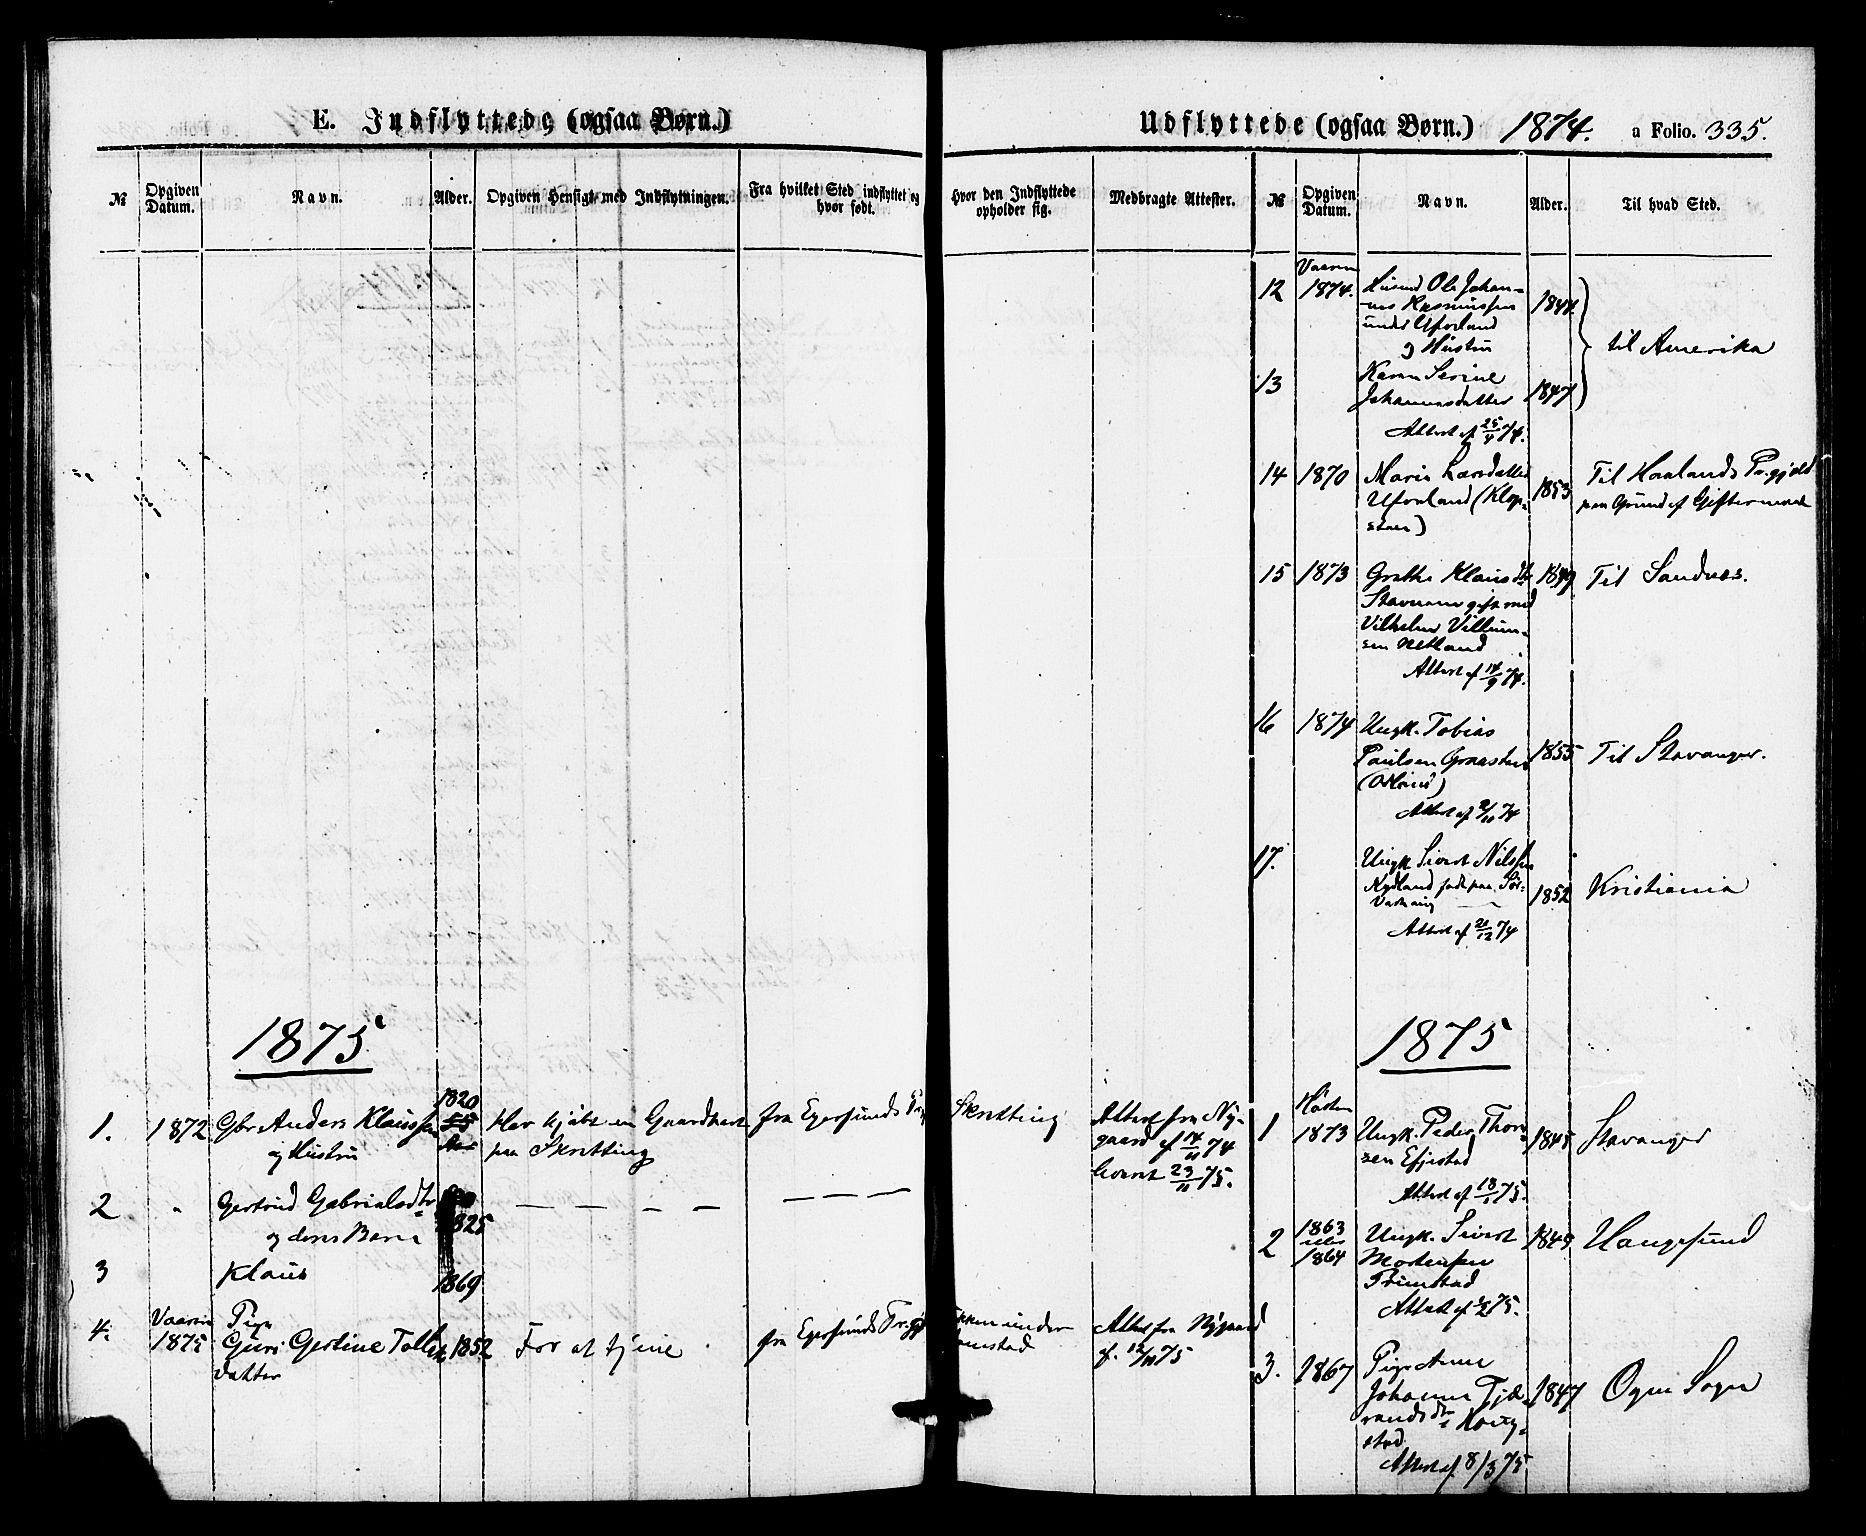 E. Indflyttede (ogsaa Børn.)
№
Opgiven Datum.
Navn.
Alder.
Opgiven Hensigt med Indflytningen.
Fra hvilket Sted indflyttet og
hvor født.
1875
1. 1872 Gbr Anders Klaussen 1820 Har kjøbt en Gaardpart fra Egersunds
og Hustru
paa Skretting
2 " Gertrud Gabrielsdtr 1825 — — — — —
og deres Barn
3 Klaus 1869
4. Vaaren
1875 Pige
Guri Gertine Tollefs 1852 For at tjene fra Egersunds Prgj
datter
Udflyttede (ogsaa Børn.) 1874. a Folio. 335.
Hvor den Indflyttede
opholder sig.
Medbragte Attester.
№
Opgiven Datum.
Navn.
Alder.
Til hvad Sted.
Skretting
Attest fra Ny-
gaard af 14/11 74
leveret 23/11 75.
Attest fra Nygaard
af 12/10 75
12 Vaaren
1874. Ole Johan-
nes Rasmussen 1844
under Ueland
og Hustru
til Amerika
13 Karen Serine
Johannesdatter 1847
Attest af 25/4 74.
14 1870 Maria Larsdatter 1853 Til Haalands Pr.gjeld
paa Grund af Giftermaal
15 1873 Grethe Klausdtr 1849 Til Sandnes.
Stavnem gift med
Vilhelm Villum-
sen Netland
Attest af 14/9 74.
16 1874 Ungk. Tobias
Paulsen Graasten 1855 Til Stavanger.
Attest af 2/11 74
17. Ungk. Sivert Nilsen
Nydland født paa Sør- 1852 Kristiania
Attest af 21/12 74
1875
1 Høsten
1873 Ungk. Peder Thor- 1845 Stavanger
sen Efjestad
Attest af 18/1 75.
2 1863
eller
1864 Ungk. Sivert 1845 Haugesund
Mortensen
Attest af 1/2 75.
3. 1867 Pige Anne
Johanne Tjø- 1847 Ogne Sogn
randsdtr Haug-
stad
Attest af 8/3 75